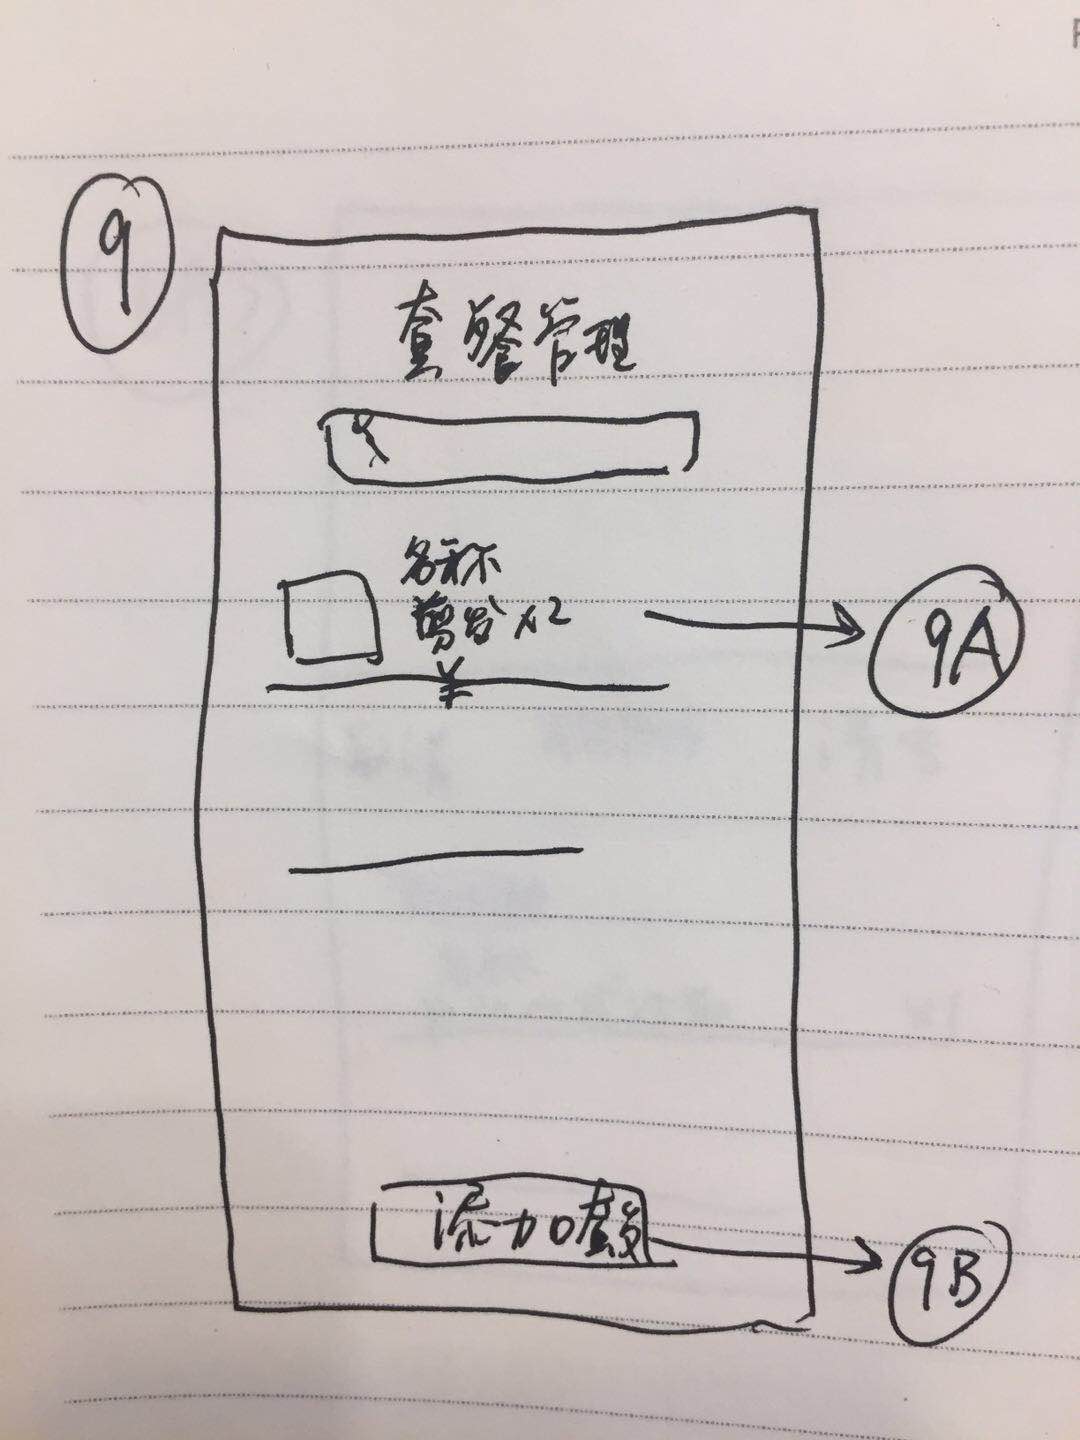 9
套餐管理
名称
剪发 x2
¥
9A
添加套餐
9B